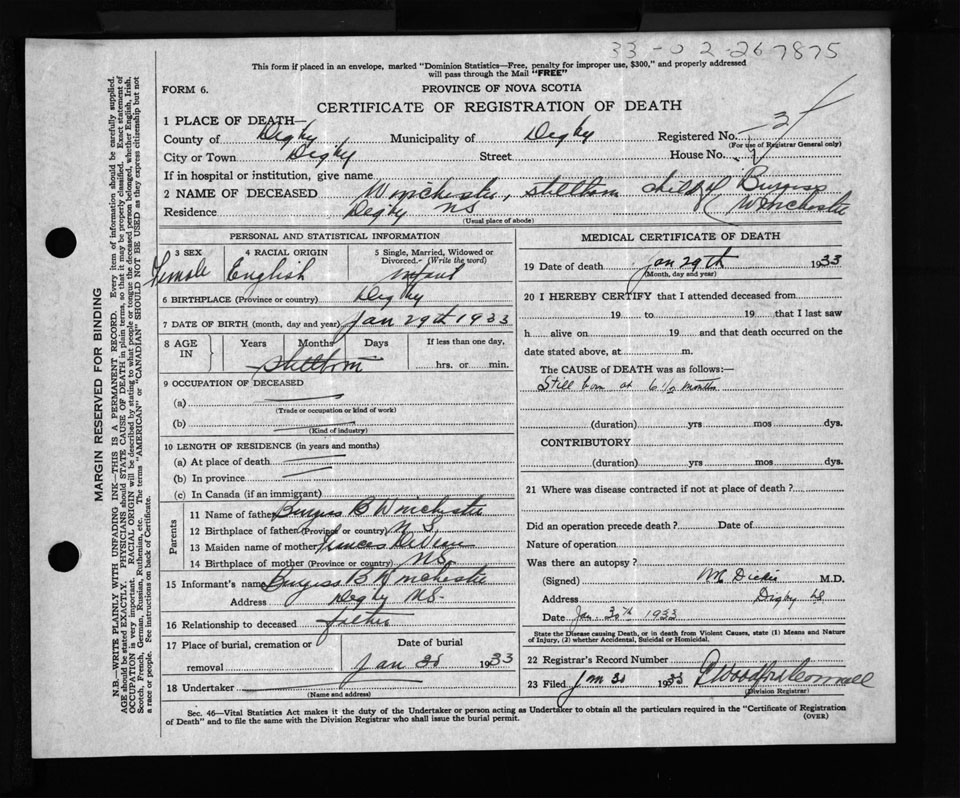 33-02-267875
This form if placed in an envelope, marked "Dominion Statistics—Free, penalty for improper use, $300," and properly addressed
will pass through the Mail "FREE"
FORM 6.
PROVINCE OF NOVA SCOTIA
CERTIFICATE OF REGISTRATION OF DEATH
1 PLACE OF DEATH—
County of Digby Municipality of Digby Registered No. 2
(For use of Registrar General only)
City or Town Digby Street House No.
If in hospital or institution, give name
2 NAME OF DECEASED Winchester, stillborn child of Burgess
Residence Digby NS Winchester
(Usual place of abode)
PERSONAL AND STATISTICAL INFORMATION
3 SEX 4 RACIAL ORIGIN 5 Single, Married, Widowed or
Divorced. (Write the word)
Female English infant
6 BIRTHPLACE (Province or country) Digby
7 DATE OF BIRTH (month, day and year) Jan 29th 1933
8 AGE IN Years Months Days If less than one day,
Stillborn hrs. or min.
9 OCCUPATION OF DECEASED
(a)
(Trade or occupation or kind of work)
(b)
(Kind of industry)
10 LENGTH OF RESIDENCE (in years and months)
(a) At place of death
(b) In province
(c) In Canada (if an immigrant)
Parents
11 Name of father Burgess B Winchester
12 Birthplace of father (Province or country) N S
13 Maiden name of mother Frances
14 Birthplace of mother (Province or country) NS
15 Informant's name Burgess B Winchester
Address Digby NS.
16 Relationship to deceased father
17 Place of burial, cremation or Date of burial
removal Jan 1933
18 Undertaker
(Name and address)
MEDICAL CERTIFICATE OF DEATH
19 Date of death Jan 29th 1933
(Month, day and year)
20 I HEREBY CERTIFY that I attended deceased from
19 to 19 that I last saw
h alive on 19 and that death occurred on the
date stated above, at m.
The CAUSE of DEATH was as follows:—
Still born at 6 1/2 months
(duration) yrs mos dys.
CONTRIBUTORY
(duration) yrs mos dys.
21 Where was disease contracted if not at place of death?
Did an operation precede death? Date of
Nature of operation
Was there an autopsy?
(Signed) Dickie M.D.
Address Digby NS
Date Jan 30th 1933
State the Disease causing Death, or in death from Violent Causes, state (1) Means and Nature
of Injury, (2) whether Accidental, Suicidal or Homicidal.
22 Registrar's Record Number
23 Filed Jan 1933
(Division Registrar)
Sec. 46—Vital Statistics Act makes it the duty of the Undertaker or person acting as Undertaker to obtain all the particulars required in the "Certificate of Registration
of Death" and to file the same with the Division Registrar who shall issue the burial permit.
(OVER)
MARGIN RESERVED FOR BINDING
N.B.—WRITE PLAINLY WITH UNFADING INK—THIS IS A PERMANENT RECORD. Every item of information should be carefully supplied.
AGE should be stated EXACTLY. PHYSICIANS should STATE CAUSE OF DEATH in plain terms, so that it may be properly classified. Exact statement of
OCCUPATION is very important. RACIAL ORIGIN will be described by stating to what people or tongue the deceased person belonged, whether English, Irish,
Scotch, French, German, Russian, Ruthenian, etc. The terms "AMERICAN" or "CANADIAN" SHOULD NOT BE USED as they express citizenship but not
a race or people. See instructions on back of Certificate.